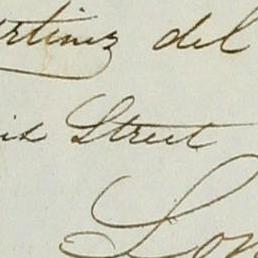 artinez del
is Street
Lon